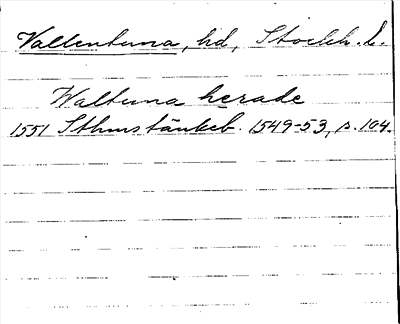 Vallentuna, hd, Stockh. l.
Waltuna herade
1551 Sthms tänkeb. 1549-53, p. 104.